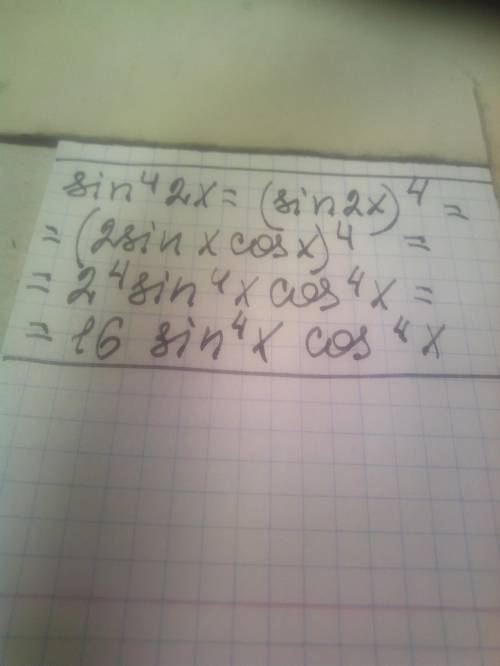 sin⁴2x = (sin2x)⁴ =
= (2sin x cosx)⁴ =
= 2⁴sin⁴x cos⁴x =
= 16 sin⁴x cos⁴x